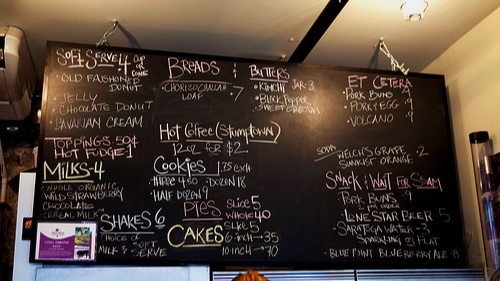 Soft Serve 4 CUP OR CONE
• OLD FASHIONED DONUT
• JELLY
• CHOCOLATE DONUT
• BAVARIAN CREAM
TOPPINGS 50¢
HOT FUDGE 1
MILKS-4
• WHOLE ORGANIC
WILD STRAWBERRY
CHOCOLATE
CEREAL MILK
SHAKES 6
CHOICE OF
MILK & SOFT SERVE
BREADS &
• CHORIZO CHILLAN LOAF 7
BUTTERS
• KIMCHI JAR 3
• BLACK PEPPER
Hot Coffee (Stumptown)
12oz for $2
Cookies 1.75 each
• THREE 4.50 • DOZEN 18
• HALF DOZEN 9
PIES SLICE 5
WHOLE 40
CAKES SLICE 5
6-inch → 35
10-inch → 70
ET CETERA
• PORK BUNS 9
• PORK & EGG 9
• VOLCANO 9
SODA WELCH'S GRAPE 2
SUNKIST ORANGE
SNACK & WAIT FOR SSAM
• PORK BUNS 9
• LONE STAR BEER 5
• SARATOGA WATER -3
SPARKLING OR FLAT
• BLUE POINT BLUEBERRY ALE - 8